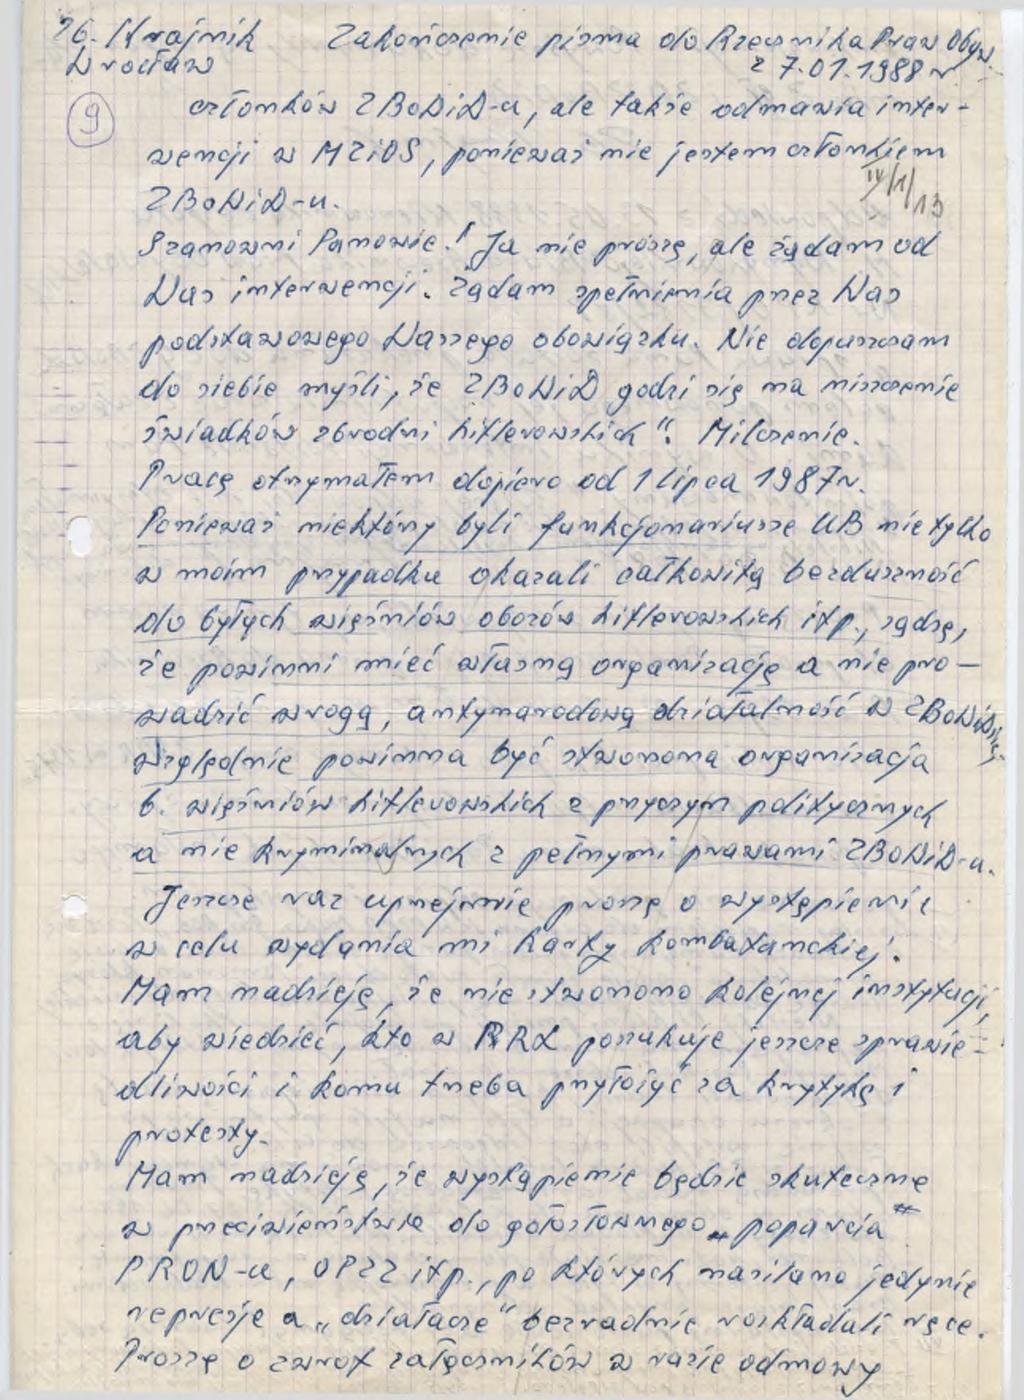 St. Krajnik Zakończenie pisma do Rzecznika Praw Obyw.
Wrocław z 7.01.1988 r
9
członków ZBoWiD-u, ale także odmawia inter-
wencji w MZiOS, ponieważ nie jestem członkiem
ZBoWiD-u.
IV/1/13
Szanowni Panowie! Ja nie proszę, ale żądam od
Was interwencji. Żądam spełnienia przez Was
podstawowego Waszego obowiązku. Nie dopuszczam
do siebie myśli, że ZBoWiD godzi się na niszczenie
świadków zbrodni hitlerowskich". Milczenie.
Pracę otrzymałem dopiero od 1 lipca 1987r.
Ponieważ niektórzy byli funkcjonariusze UB nie tylko
w moim przypadku okazali całkowitą bezduszność
do byłych więźniów obozów hitlerowskich itp., sądzę,
że powinni mieć własną organizację a nie pro-
wadzić wrogą, antynarodową działalność w ZBoWiD
względnie powinna być stworzona organizacja
b. więźniów hitlerowskich z przyczyn politycznych
a nie kryminalnych z pełnymi prawami ZBoWiD-u.
Jeszcze raz uprzejmie proszę o wystąpienie
w celu wydania mi karty kombatanckiej.
Mam nadzieję, że nie stworzono kolejnej instytucji,
aby wiedzieć, kto w PRL poszukuje jeszcze sprawie-
dliwości i komu trzeba przyłożyć za krytykę i
protesty.
Mam nadzieję, że wystąpienie będzie skuteczne
w przeciwieństwie do gołosłownego „poparcia"
PRON-u, OPZZ itp., po których nasilano jedynie
represje a „działacze" bezradnie rozkładali ręce.
Proszę o zwrot załączników w razie odmowy